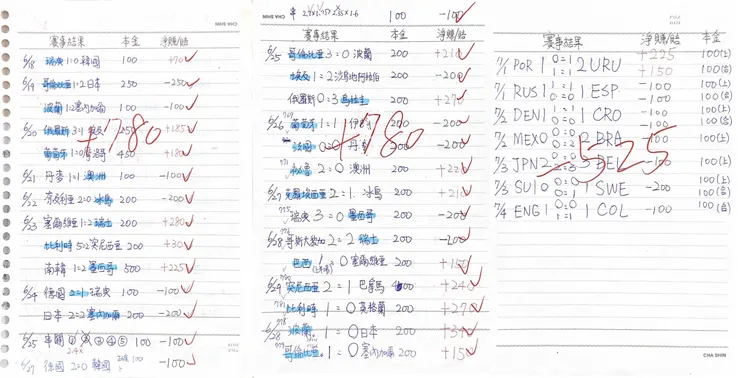 CHA SHIN
賽事結果 本金 淨賺/賠
6/18 瑞典 1:0 韓國 100 +70
6/19 哥倫比亞 1:2 日本 250 -250
波蘭 1:2 塞內加爾 100 -100
6/20 俄羅斯 3:1 埃及 250 +185
葡萄牙 1:0 摩洛哥 450 +180
6/21 丹麥 1:1 澳洲 100 -100
6/22 奈及利亞 2:0 冰島 200 -200
6/23 塞爾維亞 1:2 瑞士 200 +280
比利時 5:2 突尼西亞 200 +30
南韓 1:2 墨西哥 500 +225
6/24 德國 2:1 瑞典 100 -100
日本 2:2 塞內加爾 200 -200
6/25 串關 ① ② ③ ④ ⑤ 100 -100
6/27 德國 2:0 韓國 100 -100
+1780
串 100 -100
CHA SHIN
賽事結果 本金 淨賺/賠
6/25 哥倫比亞 3=0 波蘭 200
埃及 1=2 沙烏地阿拉伯 200 -200
俄羅斯 0=3 烏拉圭 200 +27
6/26 葡萄牙 1=1 伊朗 200 -200
法國 0=0 丹麥 200 -200
秘魯 2=0 澳洲 200
6/27 克羅埃西亞 2=1 冰島 200
瑞典 3=0 墨西哥 200 -200
6/28 哥斯大黎加 2=2 瑞士 200 -200
巴西 1=0 塞爾維亞 200
6/29 突尼西亞 2=1 巴拿馬 400 +240
比利時 1=0 英格蘭 200 +270
6/28 波蘭 1=0 日本 200
哥倫比亞 1=0 塞內加爾 200
+1780
賽事結果 淨賺/賠 本金
7/1 POR 1 1=1 2 URU +225 100(上)
+150 100(合)
7/1 RUS 1 1=1 1 ESP -100 100(上)
-100 100(合)
7/2 DEN 1 1=1 1 CRO -100 100(上)
-100 100(合)
7/2 MEX 0 0=0 2 BRA 100(上)
7/3 JPN 2 3 BEL -100 100(上)
7/3 SUI 0 1 SWE -200 100(上)
100(合)
7/4 ENG 1 1 COL -100 100(合)
-525
CHA SHIN